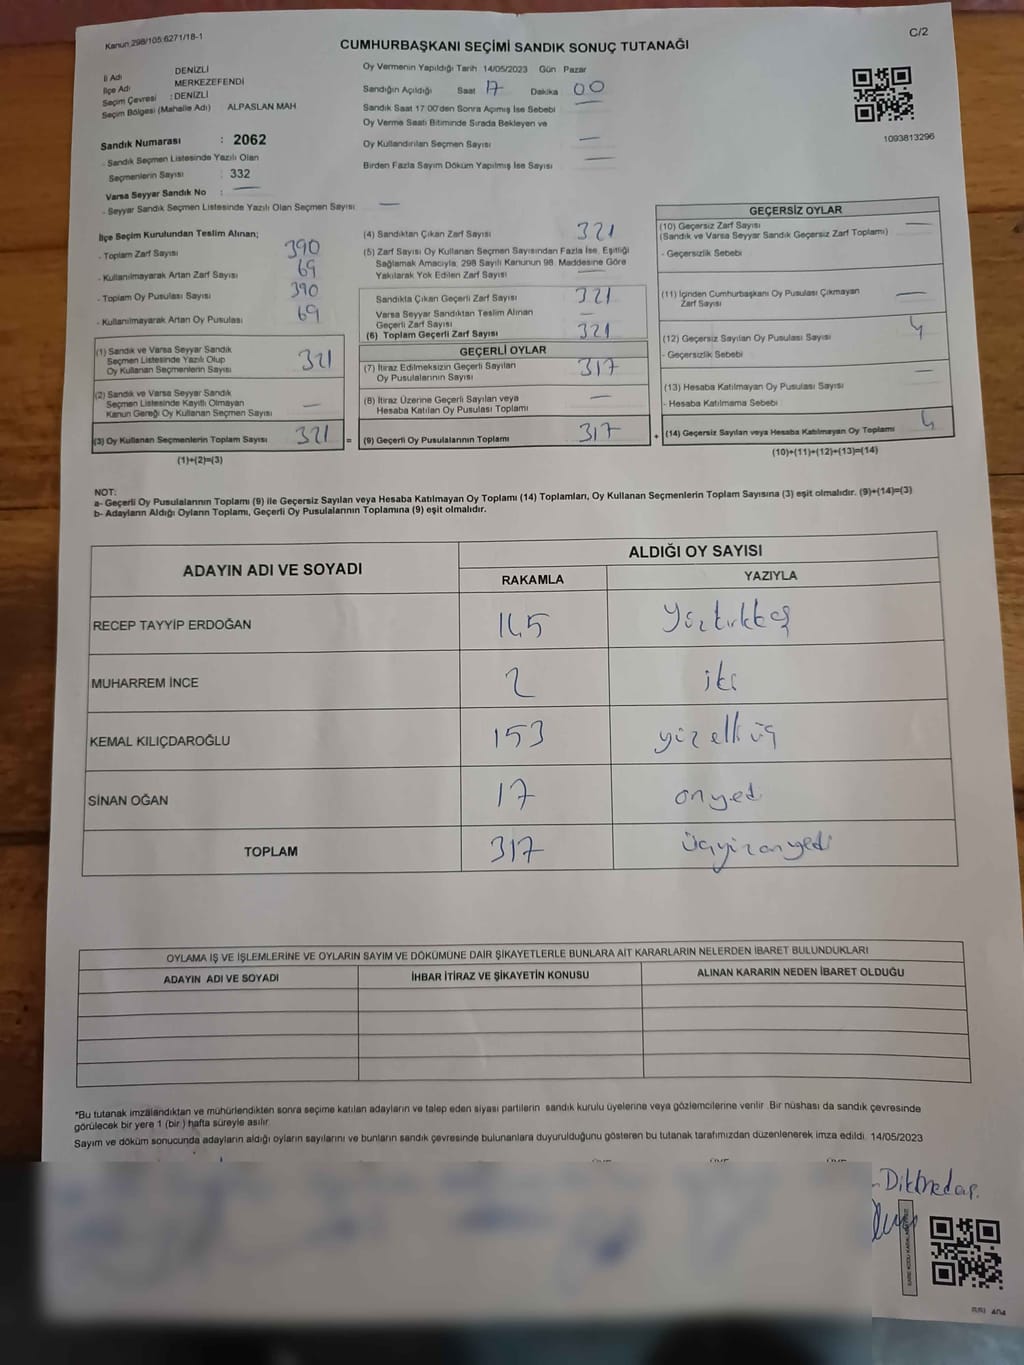 Kanun 298/105:6271/18-1
C/2
CUMHURBAŞKANI SEÇİMİ SANDIK SONUÇ TUTANAĞI
İl Adı DENİZLİ
İlçe Adı MERKEZEFENDİ
Seçim Çevresi : DENİZLİ
Seçim Bölgesi (Mahalle Adı) ALPASLAN MAH
Sandık Numarası : 2062
- Sandık Seçmen Listesinde Yazılı Olan
Seçmenlerin Sayısı : 332
Varsa Seyyar Sandık No : —
- Seyyar Sandık Seçmen Listesinde Yazılı Olan Seçmen Sayısı —
Oy Vermenin Yapıldığı Tarih 14/05/2023 Gün Pazar
Sandığın Açıldığı Saat 17 Dakika 00
Sandık Saat 17:00'den Sonra Açımış İse Sebebi —
Oy Verme Saati Bitiminde Sırada Bekleyen ve
Oy Kullandırılan Seçmen Sayısı —
Birden Fazla Sayım Döküm Yapılmış İse Sayısı —
1093813296
İlçe Seçim Kurulundan Teslim Alınan;
- Toplam Zarf Sayısı 390
- Kullanılmayarak Artan Zarf Sayısı 69
- Toplam Oy Pusulası Sayısı 390
- Kullanılmayarak Artan Oy Pusulası 69
(1) Sandık ve Varsa Seyyar Sandık
Seçmen Listesinde Yazılı Olup
Oy Kullanan Seçmenlerin Sayısı 321
(2) Sandık ve Varsa Seyyar Sandık
Seçmen Listesinde Kayıtlı Olmayan
Kanun Gereği Oy Kullanan Seçmen Sayısı —
(3) Oy Kullanan Seçmenlerin Toplam Sayısı 321 =
(1)+(2)=(3)
(4) Sandıktan Çıkan Zarf Sayısı 321
(5) Zarf Sayısı Oy Kullanan Seçmen Sayısından Fazla İse, Eşitliği
Sağlamak Amacıyla, 298 Sayılı Kanunun 98. Maddesine Göre
Yakılarak Yok Edilen Zarf Sayısı —
Sandıkta Çıkan Geçerli Zarf Sayısı 321
Varsa Seyyar Sandıktan Teslim Alınan
Geçerli Zarf Sayısı —
(6) Toplam Geçerli Zarf Sayısı 321
GEÇERLİ OYLAR
(7) İtiraz Edilmeksizin Geçerli Sayılan
Oy Pusulalarının Sayısı 317
(8) İtiraz Üzerine Geçerli Sayılan veya
Hesaba Katılan Oy Pusulası Toplamı —
(9) Geçerli Oy Pusulalarının Toplamı 317 +
GEÇERSİZ OYLAR
(10) Geçersiz Zarf Sayısı —
(Sandık ve Varsa Seyyar Sandık Geçersiz Zarf Toplamı)
- Geçersizlik Sebebi
(11) İçinden Cumhurbaşkanı Oy Pusulası Çıkmayan
Zarf Sayısı —
(12) Geçersiz Sayılan Oy Pusulası Sayısı 4
- Geçersizlik Sebebi
(13) Hesaba Katılmayan Oy Pusulası Sayısı —
- Hesaba Katılmama Sebebi
(14) Geçersiz Sayılan veya Hesaba Katılmayan Oy Toplamı 4
(10)+(11)+(12)+(13)=(14)
NOT:
a- Geçerli Oy Pusulalarının Toplamı (9) ile Geçersiz Sayılan veya Hesaba Katılmayan Oy Toplamı (14) Toplamları, Oy Kullanan Seçmenlerin Toplam Sayısına (3) eşit olmalıdır. (9)+(14)=(3)
b- Adayların Aldığı Oyların Toplamı, Geçerli Oy Pusulalarının Toplamına (9) eşit olmalıdır.
ADAYIN ADI VE SOYADI ALDIĞI OY SAYISI
RAKAMLA YAZIYLA
RECEP TAYYİP ERDOĞAN 145 Yüzkırkbeş
MUHARREM İNCE 2 iki
KEMAL KILIÇDAROĞLU 153 yüzelliüç
SİNAN OĞAN 17 onyedi
TOPLAM 317 üçyüzonyedi
OYLAMA İŞ VE İŞLEMLERİNE VE OYLARIN SAYIM VE DÖKÜMÜNE DAİR ŞİKAYETLERLE BUNLARA AİT KARARLARIN NELERDEN İBARET BULUNDUKLARI
ADAYIN ADI VE SOYADI İHBAR İTİRAZ VE ŞİKAYETİN KONUSU ALINAN KARARIN NEDEN İBARET OLDUĞU
*Bu tutanak imzalandıktan ve mühürlendikten sonra seçime katılan adayların ve talep eden siyasi partilerin sandık kurulu üyelerine veya gözlemcilerine verilir. Bir nüshası da sandık çevresinde
görülecek bir yere 1 (bir ) hafta süreyle asılır.
Sayım ve döküm sonucunda adayların aldığı oyların sayılarını ve bunların sandık çevresinde bulunanlara duyurulduğunu gösteren bu tutanak tarafımızdan düzenlenerek imza edildi. 14/05/2023